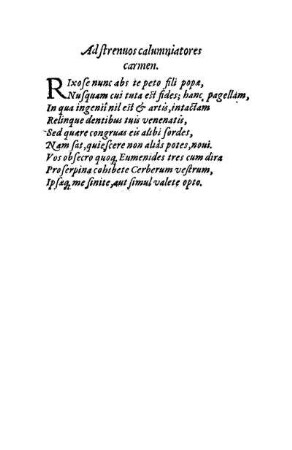 Ad strenuos calumniatores
carmen.
RIxose nunc abs te peto fili popæ,
Nusquam cui tuta est fides; hanc pagellam,
In qua ingenii nil est & artis, intactam
Relinque dentibus tuis venenatis,
Sed quare congruas eis alibi sordes,
Nam sat, quiescere non aliàs potes, noui.
Vos obsecro quoq, Eumenides tres cum dira
Proserpina cohibete Cerberum vestrum,
Ipsæq, me sinite, aut simul valete opto.